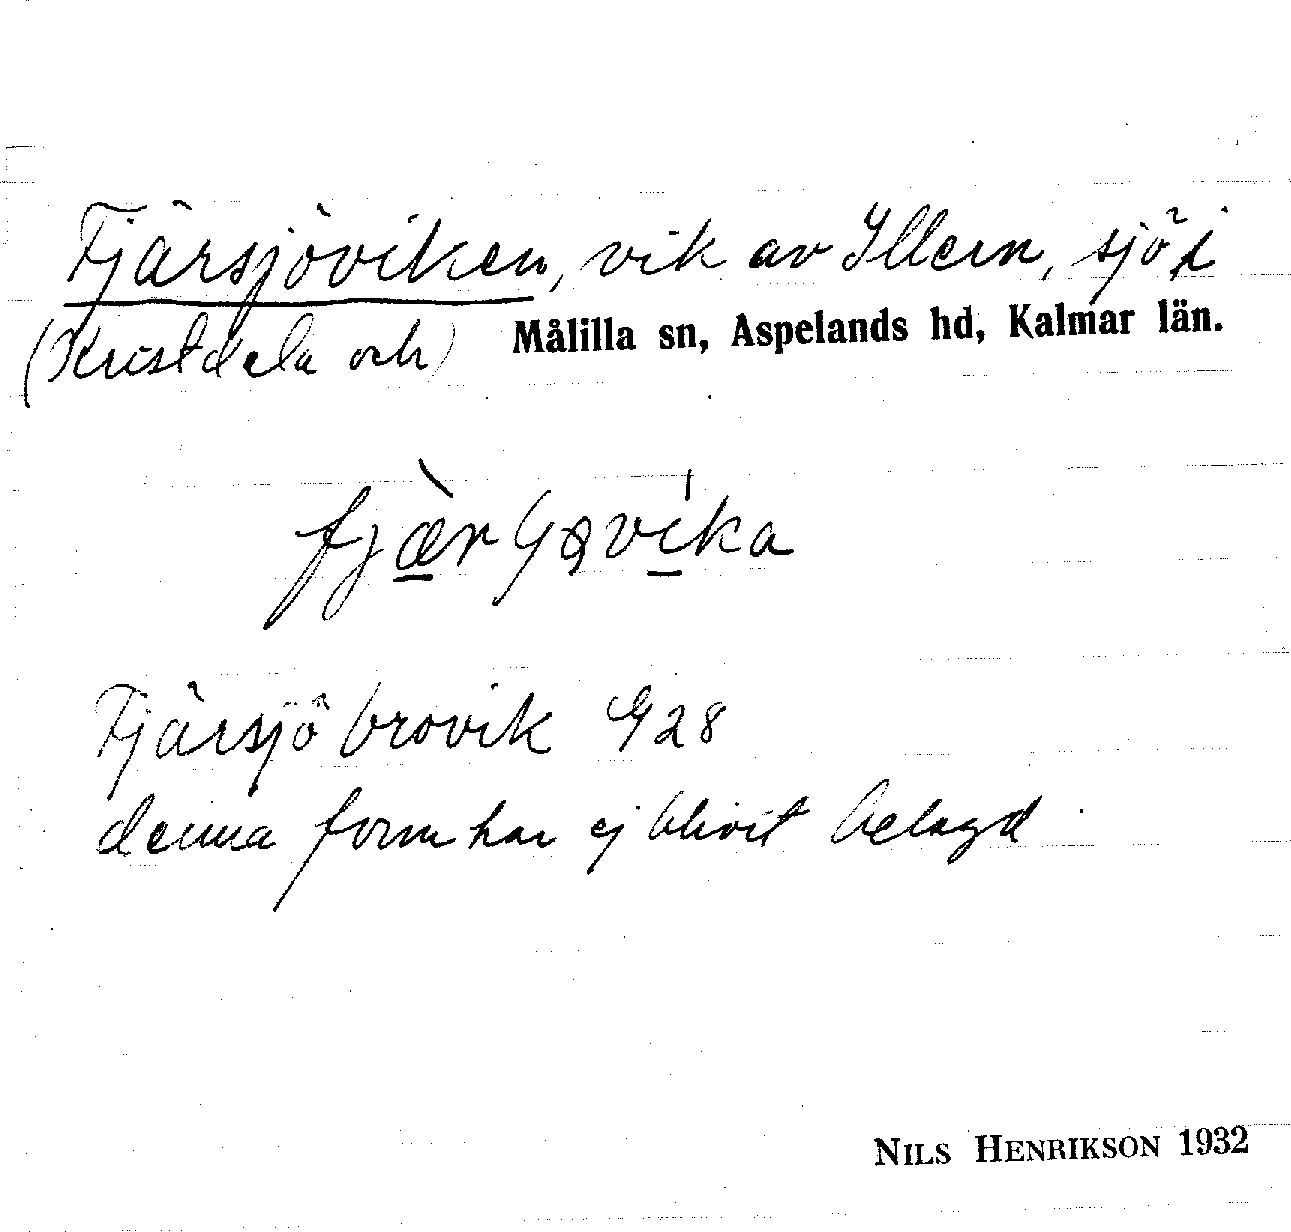 Fjärsjöviken, vik av Illern, sjö i
(Kristdala och) Målilla sn, Aspelands hd, Kalmar län.
Fjärsjö brovik G 28
denna form har ej blivit belagd
NILS HENRIKSON 1932